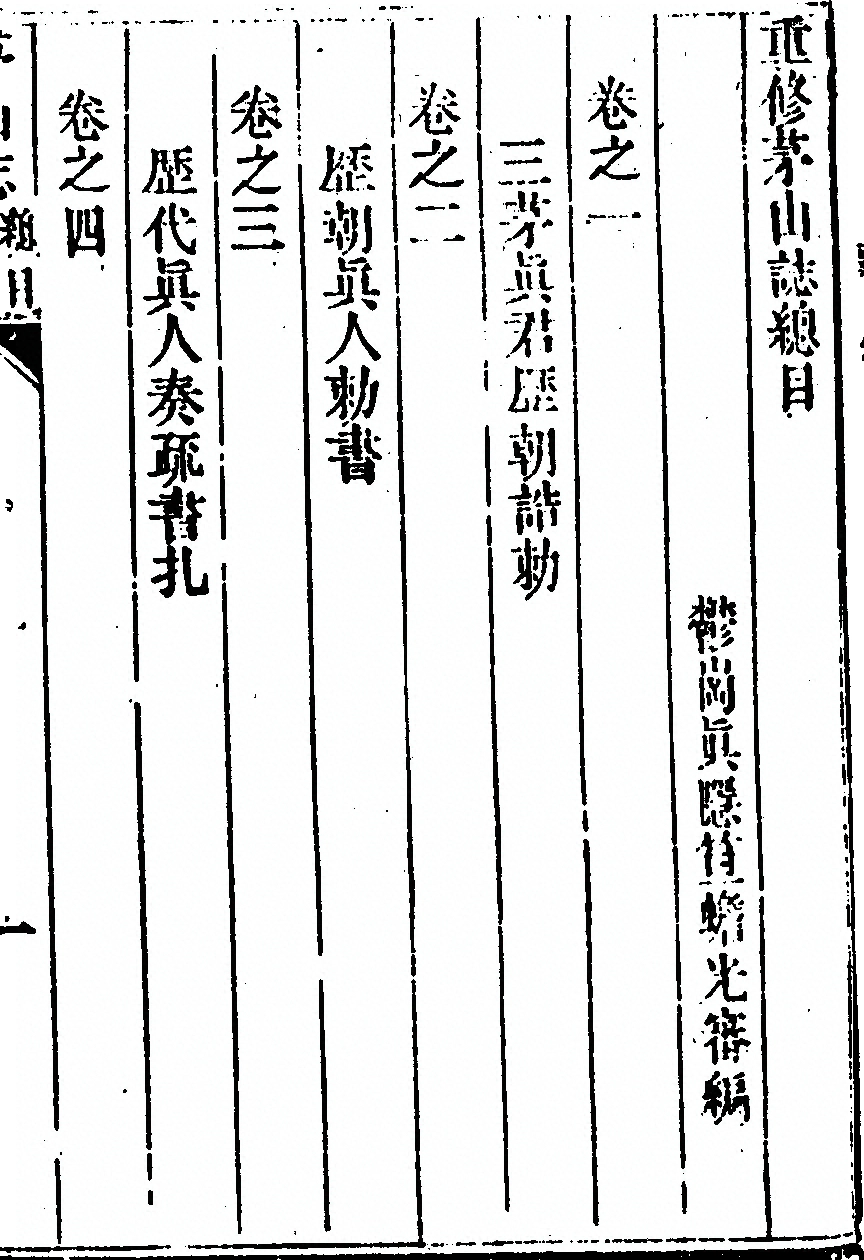 重修茅山誌總目
鬱岡眞隱笪蟾光審編
卷之一
三茅眞君歷朝誥勅
卷之二
歷朝眞人勅書
卷之三
歷代眞人奏疏書扎
卷之四
山志 總目
一